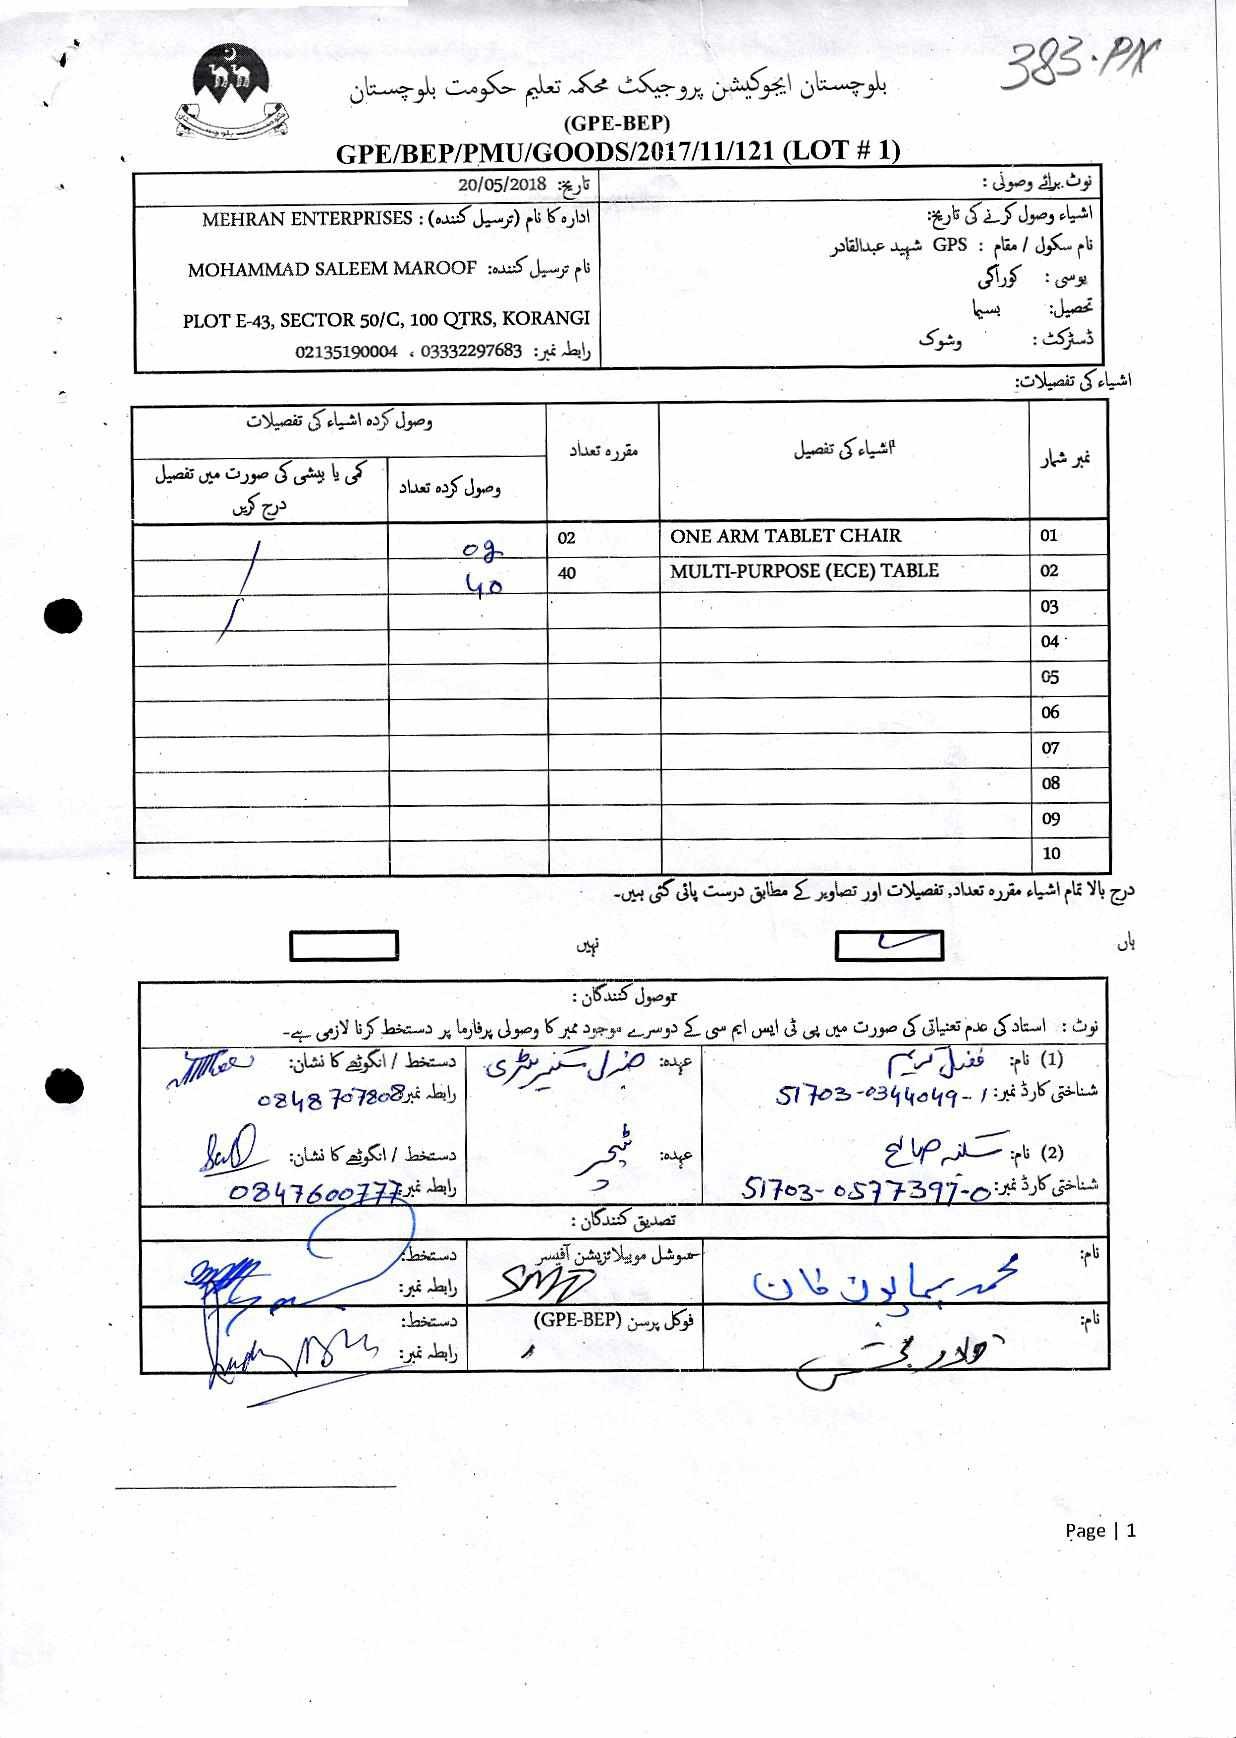 383.PN
بلوچستان ایجوکیشن پروجیکٹ محکمہ تعلیم حکومت بلوچستان
(GPE-BEP)
GPE/BEP/PMU/GOODS/2017/11/121 (LOT # 1)
نوٹ برائے وصولی :
اشیاء وصول کرنے کی تاریخ:
نام سکول / مقام : GPS شہید عبدالقادر
یوسی : کوراکی
تحصیل: بسیما
ڈسٹرکٹ : وشوک
تاریخ: 20/05/2018
ادارہ کا نام (ترسیل کنندہ) : MEHRAN ENTERPRISES
نام ترسیل کنندہ: MOHAMMAD SALEEM MAROOF
PLOT E-43, SECTOR 50/C, 100 QTRS, KORANGI
رابطہ نمبر: 03332297683 ، 02135190004
اشیاء کی تفصیلات:
نمبر شمار اشیاء کی تفصیل مقررہ تعداد وصول کردہ اشیاء کی تفصیلات
وصول کردہ تعداد کمی یا بیشی کی صورت میں تفصیل درج کریں
01 ONE ARM TABLET CHAIR 02 02
02 MULTI-PURPOSE (ECE) TABLE 40 40
03
04
05
06
07
08
09
10
درج بالا تمام اشیاء مقررہ تعداد, تفصیلات اور تصاویر کے مطابق درست پائی گئی ہیں۔
ہاں نہیں
وصول کنندگان :
نوٹ : استاد کی عدم تعنیاتی کی صورت میں پی ٹی ایس ایم سی کے دوسرے موجود ممبر کا وصولی پرفارما پر دستخط کرنا لازمی ہے۔
(1) نام: فضل کریم عہدہ: جنرل سیکریٹری دستخط / انگوٹھے کا نشان:
شناختی کارڈ نمبر: 51703-0344049-1 رابطہ نمبر 0848707808
(2) نام: سکینہ صالح عہدہ: ٹیچر دستخط / انگوٹھے کا نشان:
شناختی کارڈ نمبر: 51703-0577397-0 رابطہ نمبر: 0847600777
تصدیق کنندگان :
نام: محمد ہمایون خان سوشل موبیلائزیشن آفیسر SMO دستخط:
رابطہ نمبر:
نام: قادر بخش فوکل پرسن (GPE-BEP) دستخط:
رابطہ نمبر:
Page | 1